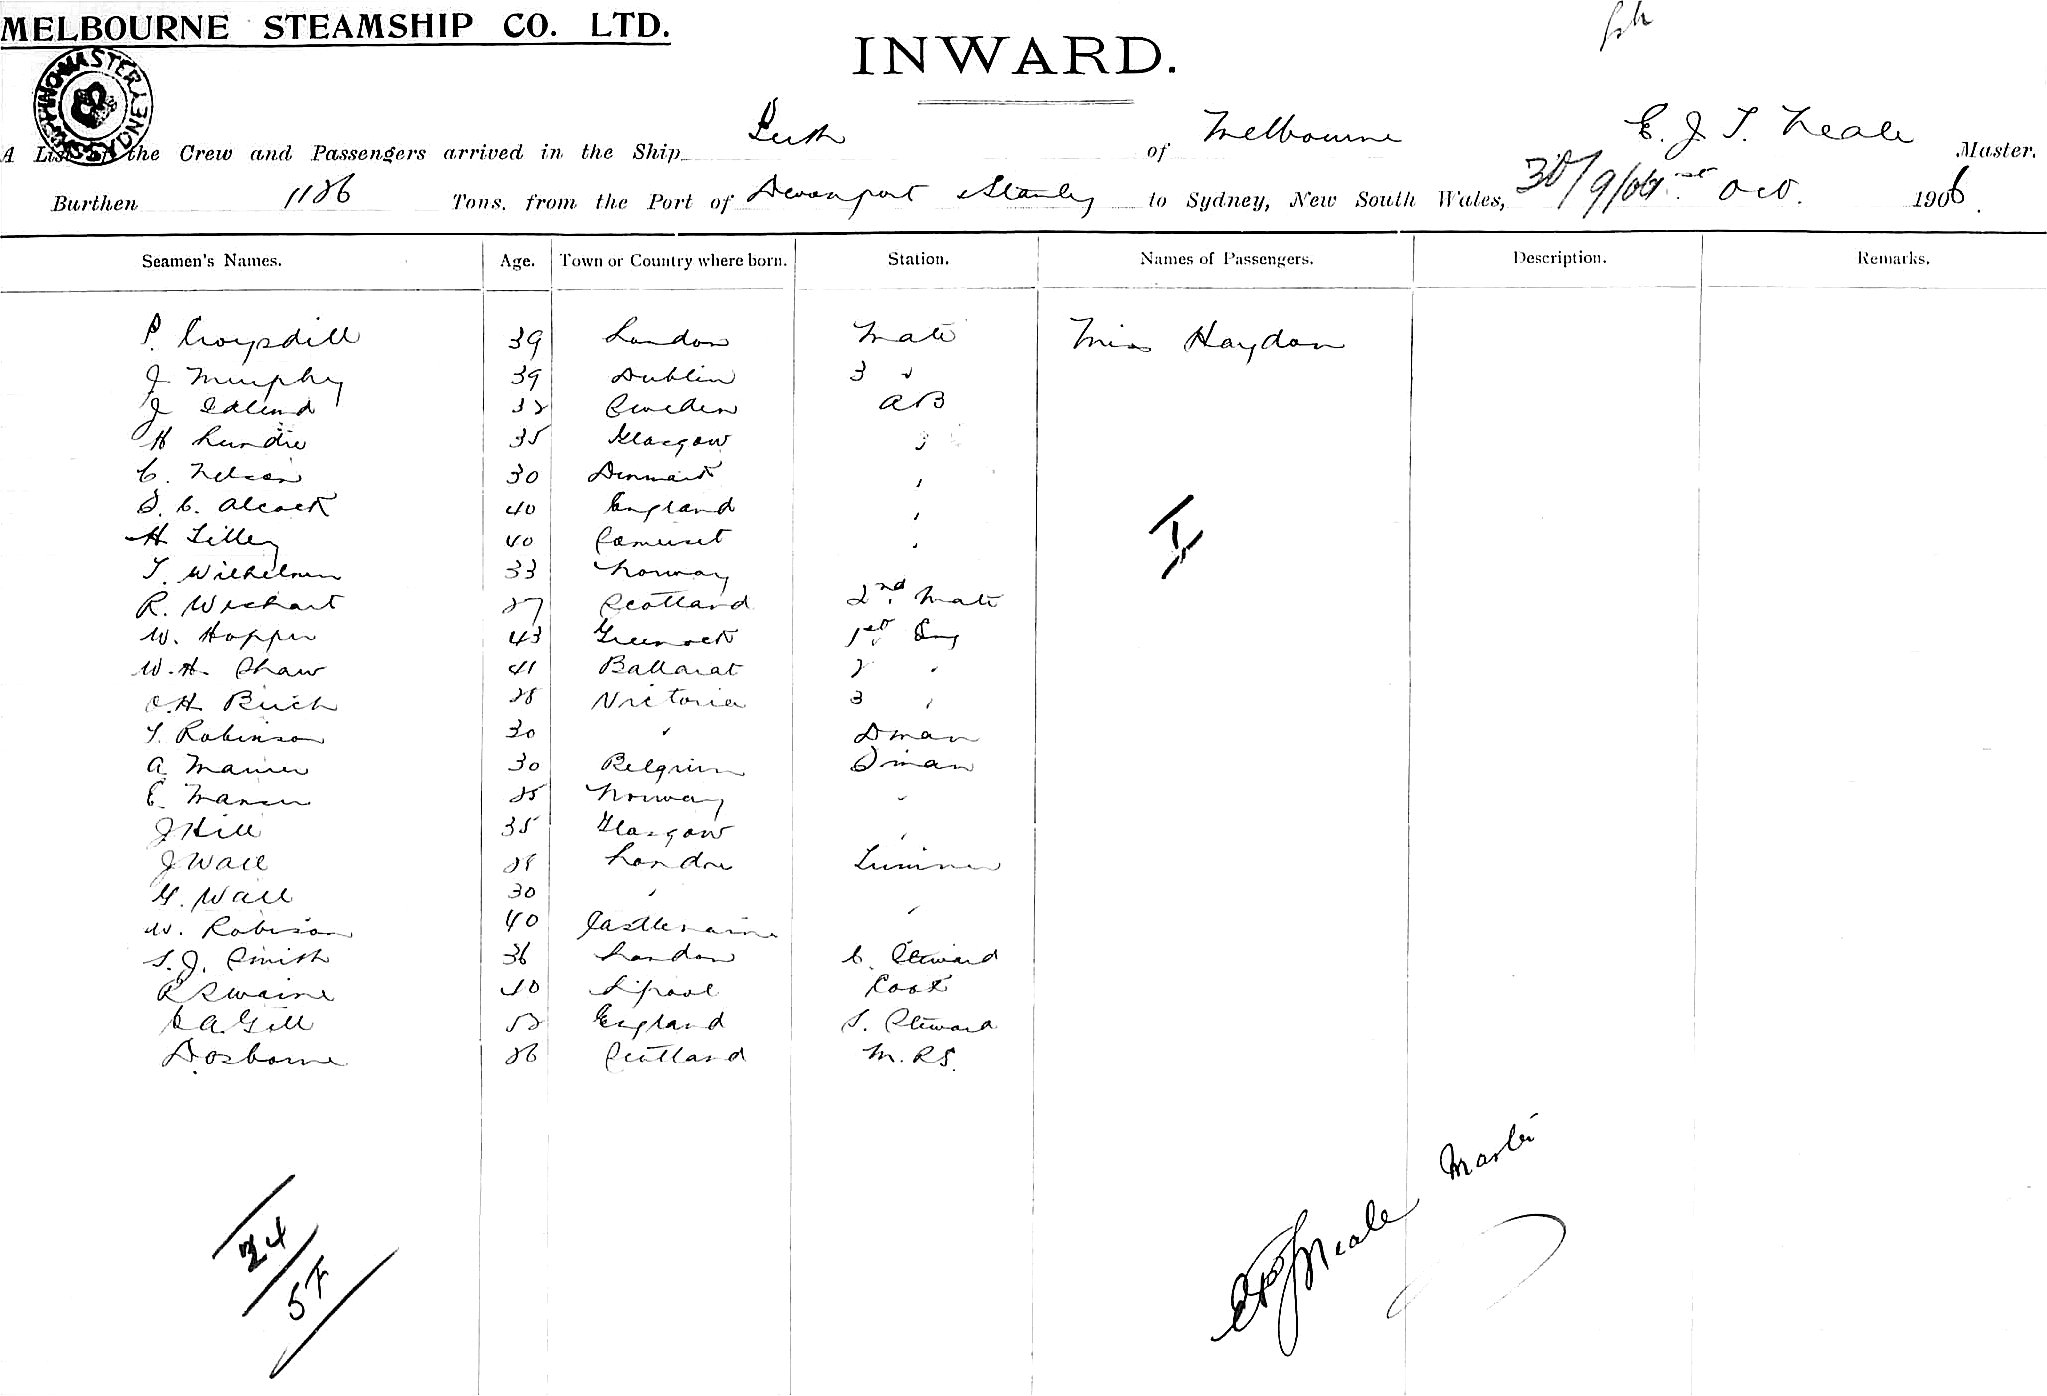 MELBOURNE STEAMSHIP CO. LTD.
INWARD.
SHIPPING MASTER SYDNEY
A List of the Crew and Passengers arrived in the Ship Perth of Melbourne E. J. T. Neale Master.
Burthen 1186 Tons. from the Port of Devonport Stanley to Sydney, New South Wales, 30/9/06 Oct. 1906.
Seamen's Names. Age. Town or Country where born. Station. Names of Passengers. Description. Remarks.
P. Croysdill 39 London Mate Miss Haydon
J Murphy 39 Dublin 3 "
J Edlund 32 Sweden AB
H Lundie 35 Glasgow "
C. Nelson 30 Denmark "
S. C. Alcock 40 England "
H Tilley 40 Somerset "
T. Wilhelmsen 33 Norway
R. Wishart 27 Scotland 2nd Mate
W. Hopper 43 Greenock 1st Eng
W. H. Shaw 41 Ballarat 2 "
O. H Birch 28 Victoria 3 "
T. Robinson 30 " Dman
A 30 Belgium Fman
E. Hansen 25 Norway "
J Hill 35 Glasgow "
J Wall 29 London Trimmer
G. Wall 30 "
W. Robinson 40 Castlemaine "
S. J. Smith 36 London C. Steward
R Swaine 40 L'pool Cook
C A. Gill 52 England S. Steward
D. Osborne 26 Scotland M. R S.
I
24
5F
E J Neale Master